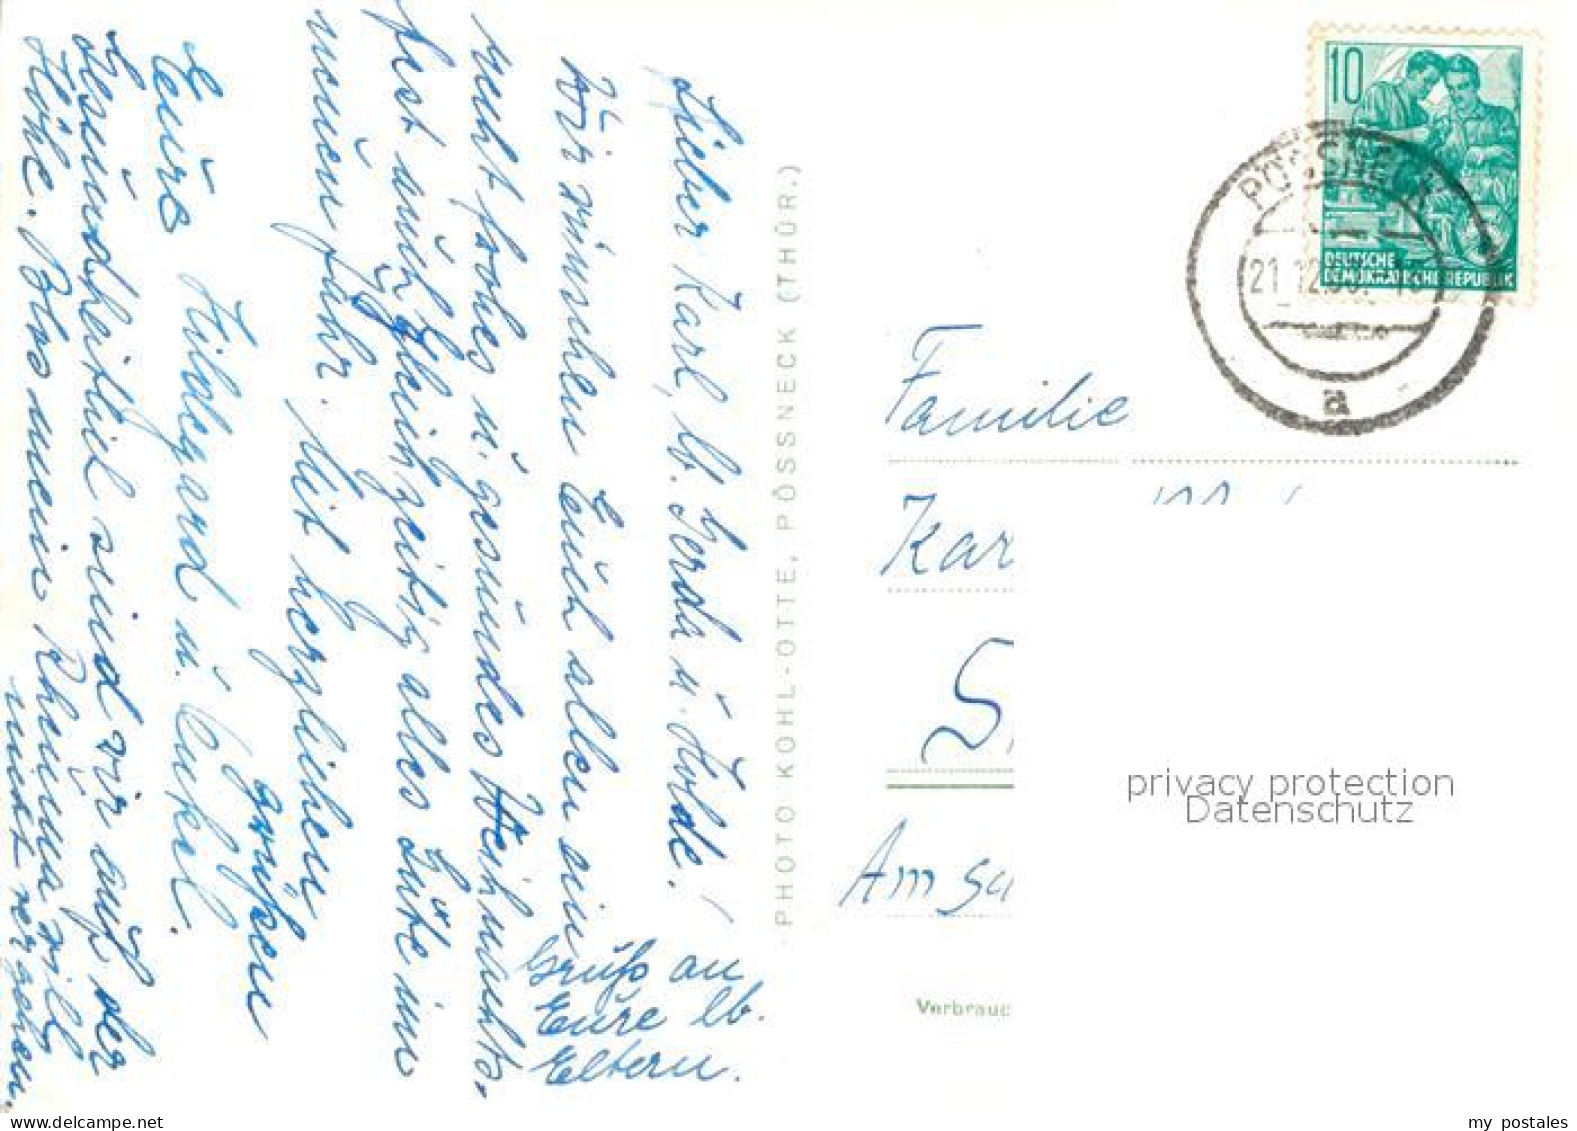 Lieber Karl, lb. Gerda u. Holde!
Wir wünschen Euch allen ein
recht frohes u. gesundes Weihnachts-
fest auch gleichzeitig alles Gute im
neuen Jahr. Mit herzlichen
grüßen
Eure Hildegard u. Enkel.
Gesundheitlich sind wir auf der
Höhe. Blos mein Rheuma will
mich nicht vergehen.
Gruß an
Eure lb.
Eltern.
PHOTO KOHL-OTTE, PÖSSNECK (THÜR.)
10
DEUTSCHE
DEMOKRATISCHE REPUBLIK
PÖSSNECK
21.12.
a
Familie
Kar
S
Am Sc
Verbrauc
privacy protection
Datenschutz
www.delcampe.net
my_postales